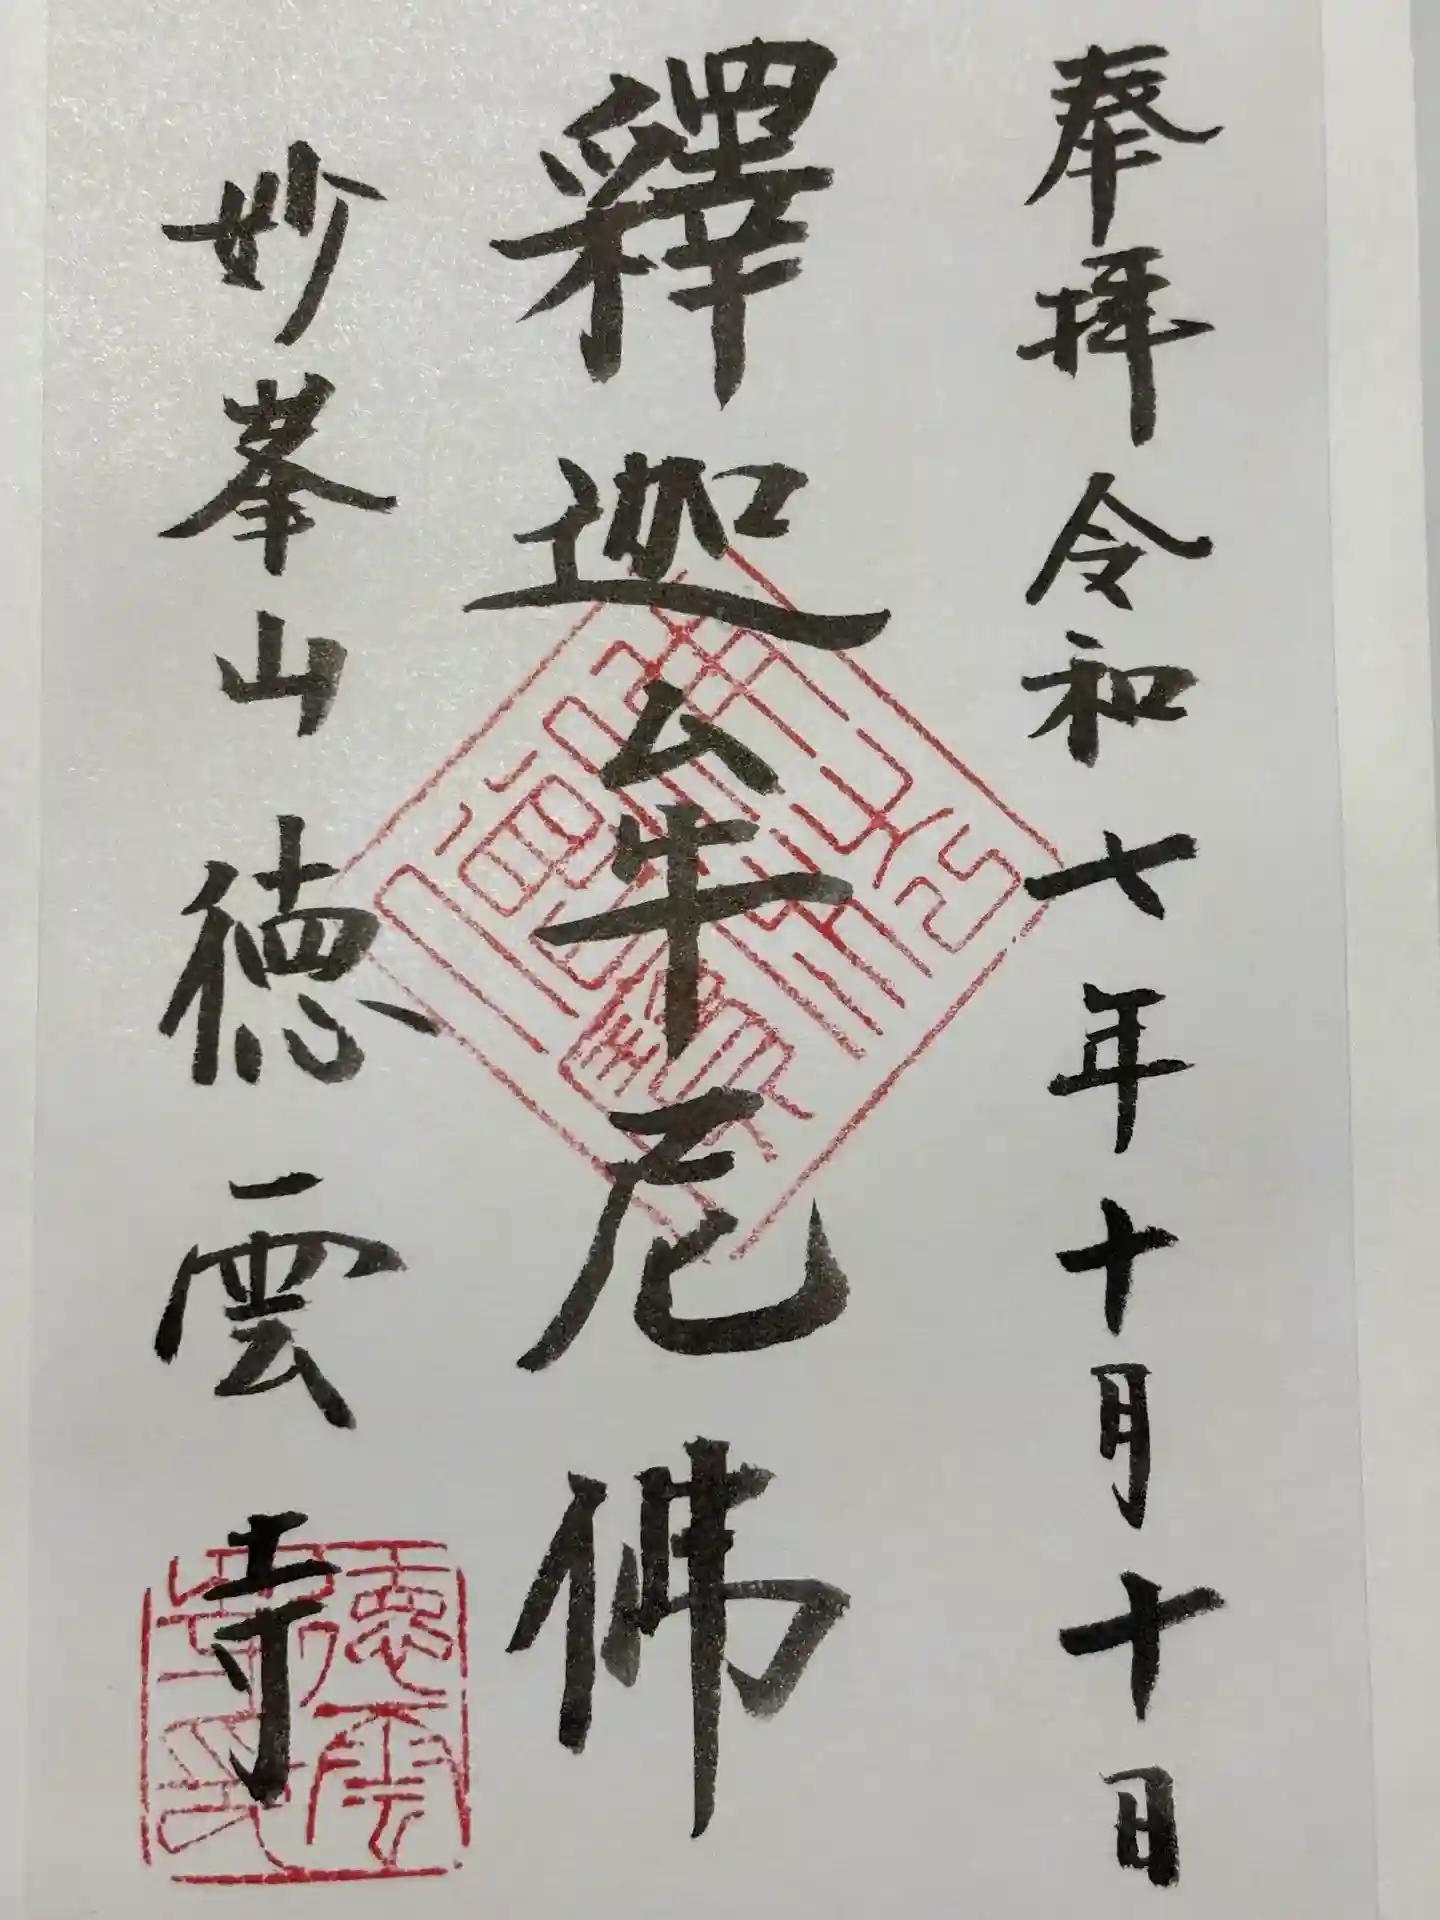 奉拝 令和七年十月十日
釋迦牟尼佛
妙峯山 徳雲寺